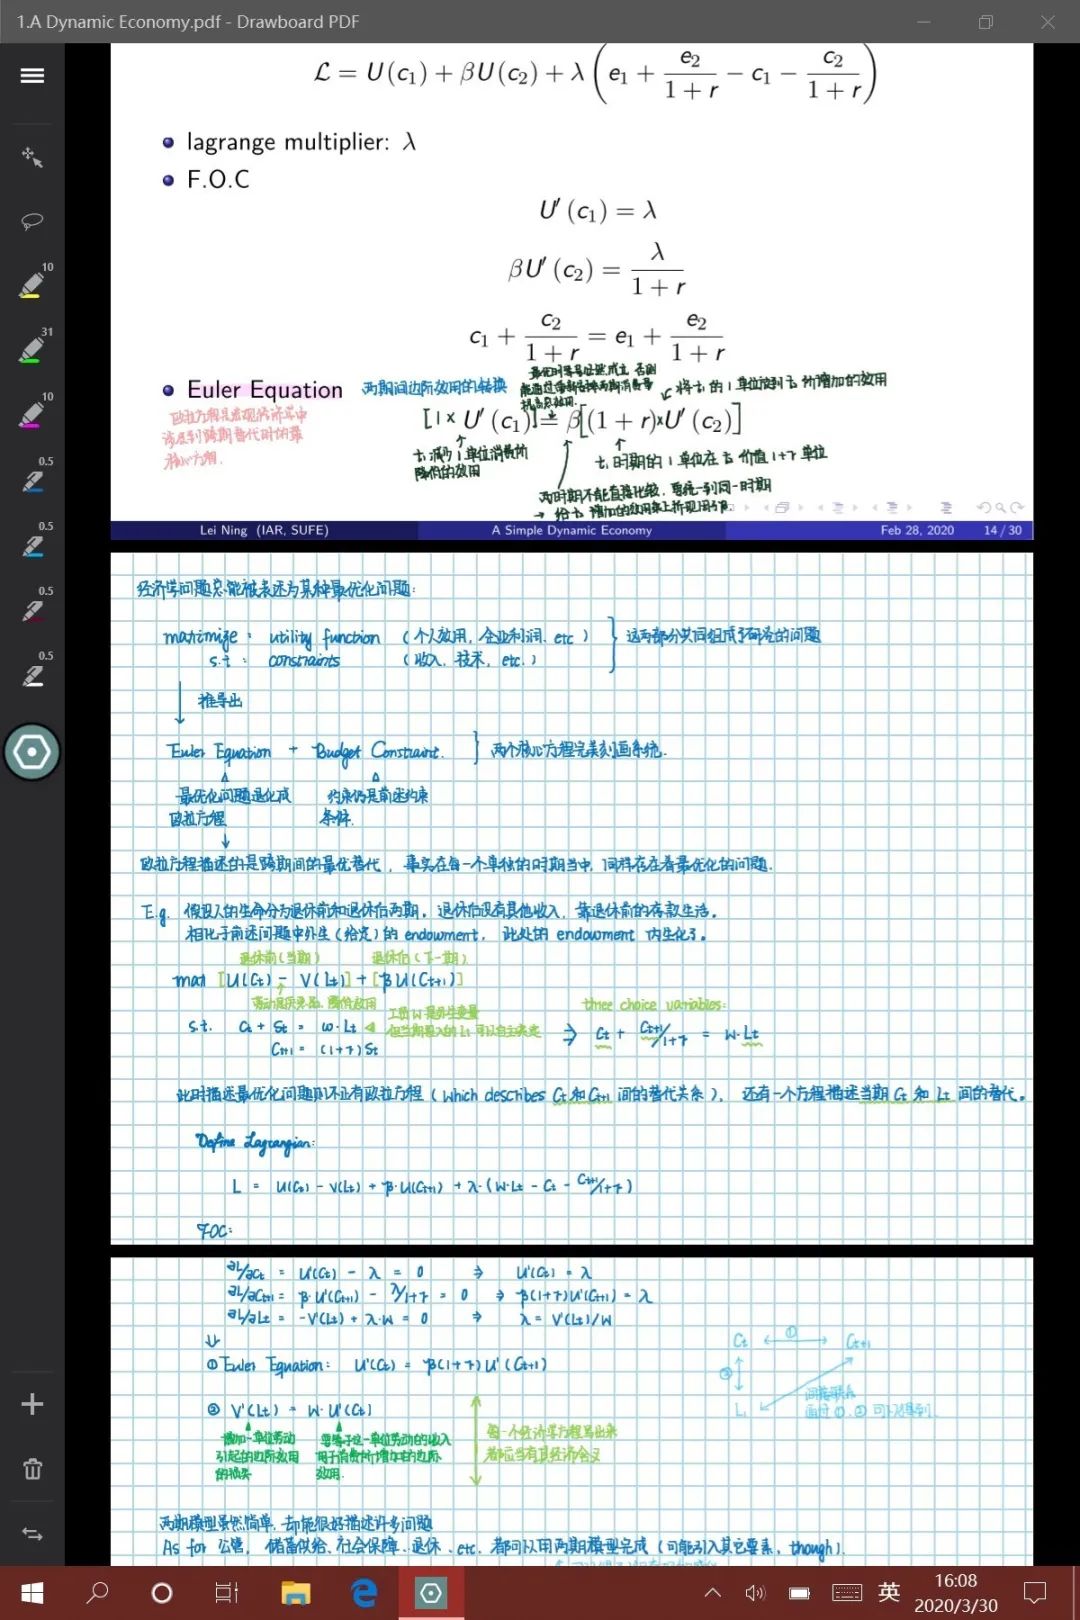 1.A Dynamic Economy.pdf - Drawboard PDF
ℒ = U(c₁) + βU(c₂) + λ(e₁ + e₂/(1 + r) − c₁ − c₂/(1 + r))
lagrange multiplier: λ
F.O.C
U′(c₁) = λ
βU′(c₂) = λ/(1 + r)
c₁ + c₂/(1 + r) = e₁ + e₂/(1 + r)
Euler Equation 两期间边际效用的转换
将t₁的1单位放到t₂所增加的效用
[1× U′(c₁)] = β[(1 + r)×U′(c₂)]
t₁减少1单位消费所
降低的效用
t₁时期的1单位在t₂价值1+r单位
两时期不能直接比较,要统一到同一时期
Lei Ning (IAR, SUFE) A Simple Dynamic Economy Feb 28, 2020 14 / 30
经济学问题总能被表述为某种最优化问题:
maximize: utility function (个人效用, 企业利润, etc)
s.t: constraints (收入, 技术, etc.)
这两部分共同组成了研究的问题
推导出
Euler Equation + Budget Constraint. 两个核心方程完美刻画系统.
最优化问题退化成 约束仍是前述约束
欧拉方程 条件.
欧拉方程描述的是跨期间的最优替代, 事实在每一个单独的时期当中, 同样存在着最优化的问题.
E.g. 假设人的生命分为退休前和退休后两期。退休后没有其他收入, 靠退休前的存款生活。
相比于前述问题中外生(给定)的 endowment, 此处的 endowment 内生化了。
退休前(当期) 退休后(下一期)
max [U(Ct) - V(Lt)] + [βU(Ct+1)]
three choice variables:
s.t. Ct + St = w·Lt
Ct+1 = (1+r)St
⇒ Ct + Ct+1/1+r = w·Lt
工资w是外生变量
但当期投入的Lt可以自主决定
此时描述最优化问题则不止有欧拉方程 (which describes Ct和Ct+1 间的替代关系), 还有一个方程描述当期 Ct 和 Lt 间的替代。
Define Lagrangian:
L = U(Ct) - V(Lt) + β·U(Ct+1) + λ·(w·Lt - Ct - Ct+1/1+r)
FOC:
∂L/∂Ct = U'(Ct) - λ = 0 ⇒ U'(Ct) = λ
∂L/∂Ct+1 = β·U'(Ct+1) - λ/1+r = 0 ⇒ β(1+r)U'(Ct+1) = λ
∂L/∂Lt = -V'(Lt) + λ·w = 0 ⇒ λ = V'(Lt)/w
① Euler Equation: U'(Ct) = β(1+r)U'(Ct+1)
② V'(Lt) = w·U'(Ct)
增加一单位劳动
引起的边际效用
的损失
要等于这一单位劳动的收入
用于消费所增加的边际
效用.
每一个经济学方程写出来
都应当有其经济含义
Ct ① Ct+1
②
L
间接联系
通过①,②可以得到.
两期模型虽然简单, 却能很好描述许多问题
As for 公债, 储蓄供给, 社会保障, 退休, etc. 都可以用两期模型完成 (可能引入其它要素, though).
10
31
10
0.5
0.5
0.5
0.5
英
16:08
2020/3/30